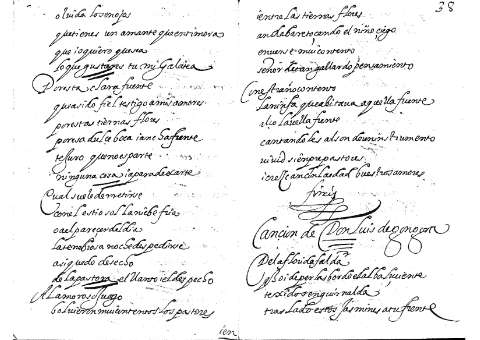 olvida los enojos
que tienes un amante que en ti mora
que io quiero que sea
lo que gustares tu mi Galatea
Por esta clara fuente
que a sido fiel testigo a mis amores
por estas tiernas flores
por esa dulce boca i ancha frente
te juro que no es parte
ninguna cosa ia para dexarte
Cual suele derretirse
con el estio sol la niebe fria
o a el parecer del dia
la tenebrosa noche despedirse
asi quedo desecho
de la pastora el llanto i el despecho
Al amoroso fuego
bolvieron mui contentos los pastores
ien
38
ientra las tiernas flores
andabe retocando el niño ciego
en verse mui contento
señor de tan gallardo pensamiento
Con estraño contento
la ninfa que abitava aquella fuente
cantando les al son de un instrumento
vivid sienpre pastores
i cresca en la edad buestros amores
finis
Cancion de Don Luis de gongora
De la florida falda
q oi de perlas bordo el alba luciente
texidos en guirnalda
traslado estos jasmines a tu frente